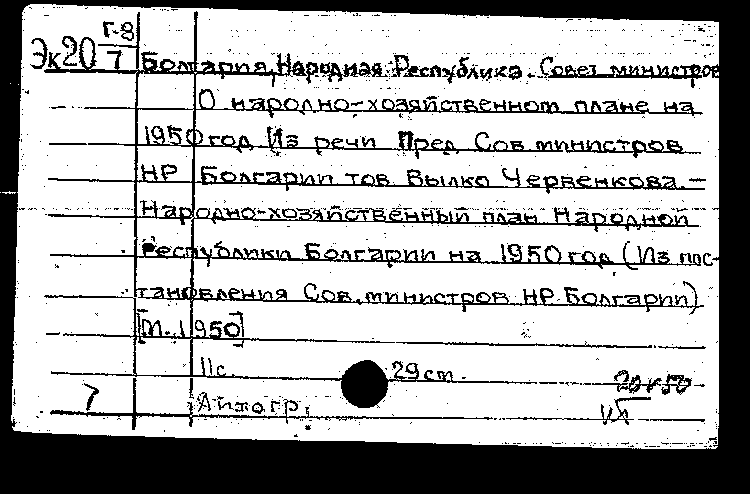 Г-8
Эк20 7 Болгария, Народная Республика. Совет министров
О народно-хозяйственном плане на
1950 год [Из речи Пред. Сов. министров
НР Болгарии тов. Вылко Червенкова. —
Народно-хозяйственный план Народной
Республики Болгарии на 1950 год (Из пос-
тановления Сов. министров НР Болгарии)
[М. 1950]
11 с. 29 см.
7